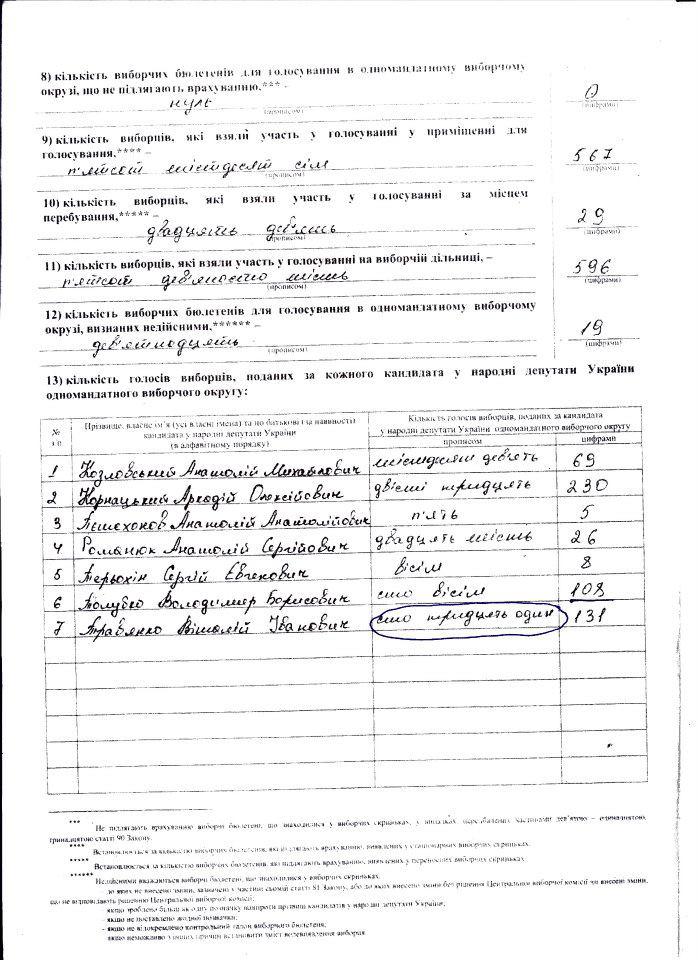 8) кількість виборчих бюлетенів для голосування в одномандатному виборчому
окрузі, що не підлягають врахуванню,*** -
нуль
0
(прописом)
(цифрами)
9) кількість виборців, які взяли участь у голосуванні у приміщенні для
голосування,**** –
п'ятсот шістдесят сім
567
(прописом)
(цифрами)
10) кількість виборців, які взяли участь у голосуванні за місцем
перебування,***** –
двадцять дев'ять
29
(прописом)
(цифрами)
11) кількість виборців, які взяли участь у голосуванні на виборчій дільниці, –
п'ятсот дев'яносто шість
596
(прописом)
(цифрами)
12) кількість виборчих бюлетенів для голосування в одномандатному виборчому
окрузі, визнаних недійсними,****** –
дев'ятнадцять
19
(прописом)
(цифрами)
13) кількість голосів виборців, поданих за кожного кандидата у народні депутати України
одномандатного виборчого округу:
№
з/п
Прізвище, власне ім'я (усі власні імена) та по батькові (за наявності)
кандидата у народні депутати України
(в алфавітному порядку)
Кількість голосів виборців, поданих за кандидата
у народні депутати України одномандатного виборчого округу
прописом цифрами
1 Козловський Анатолій Михайлович шістдесят дев'ять 69
2 Корнацький Аркадій Олексійович двісті тридцять 230
3 Анатолій Анатолійович п'ять 5
4 Романюк Анатолій Сергійович двадцять шість 26
5 Терьохін Сергій Євгенович вісім 8
6 Толубко Володимир Борисович сто вісім 108
7 Травянко Віталій Іванович сто тридцять один 131
*** Не підлягають врахуванню виборчі бюлетені, що знаходилися у виборчих скриньках, у випадках, передбачених частинами дев'ятою – одинадцятою,
тринадцятою статті 90 Закону.
**** Встановлюється за кількістю виборчих бюлетенів, які підлягають врахуванню, виявлених у стаціонарних виборчих скриньках.
***** Встановлюється за кількістю виборчих бюлетенів, які підлягають врахуванню, виявлених у переносних виборчих скриньках.
****** Недійсними вважаються виборчі бюлетені, що знаходилися у виборчих скриньках:
- до яких не внесено зміни, зазначені у частині сьомій статті 81 Закону, або до яких внесено зміни без рішення Центральної виборчої комісії чи внесені зміни,
що не відповідають рішенню Центральної виборчої комісії;
- якщо зроблено більш як одну позначку навпроти прізвищ кандидатів у народні депутати України;
- якщо не поставлено жодної позначки;
- якщо не відокремлено контрольний талон виборчого бюлетеня;
- якщо неможливо з інших причин встановити зміст волевиявлення виборця.